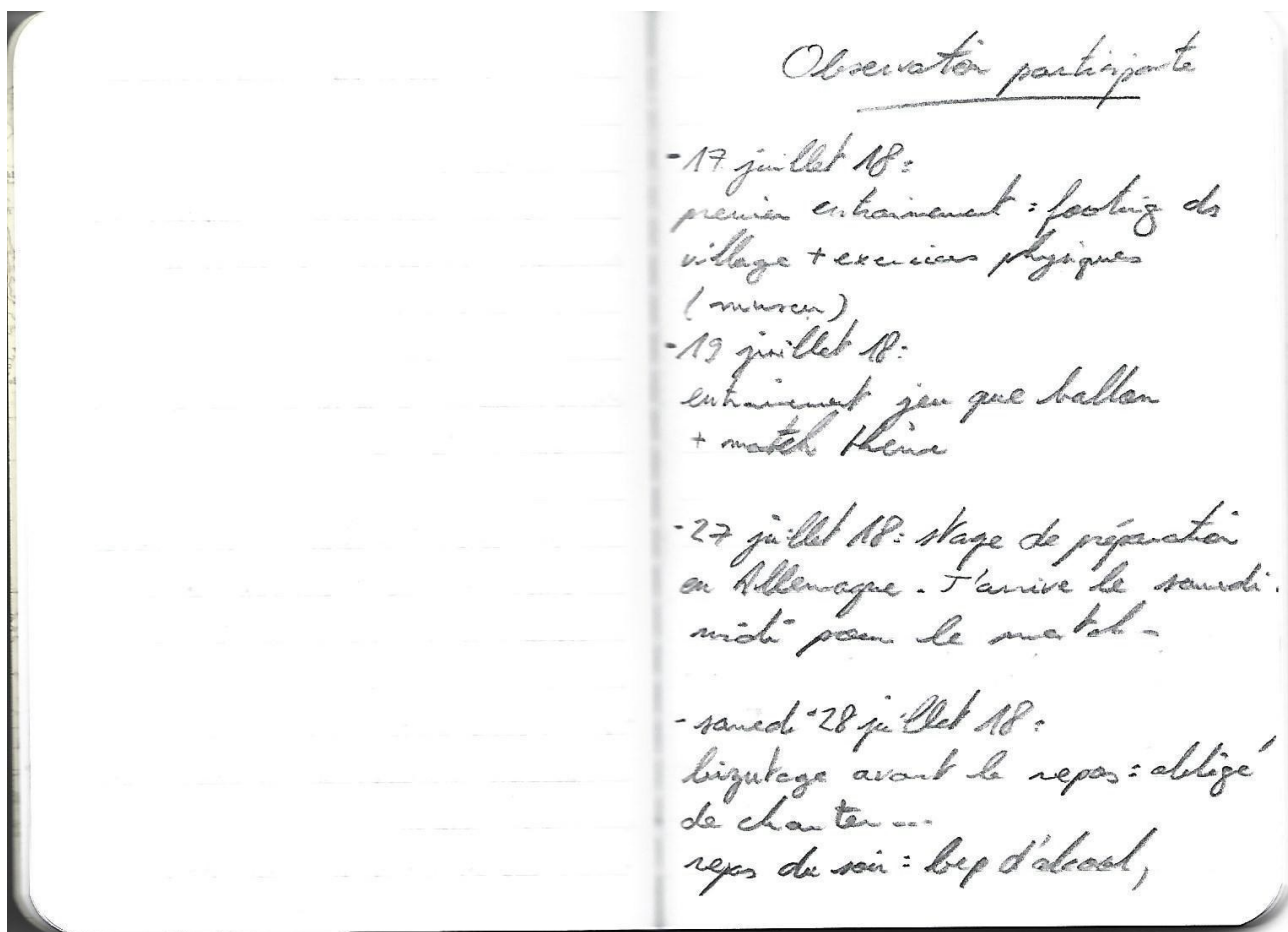 Observation participante
- 17 juillet 18 :
premier entrainement : footing ds
village + exercices physiques
(muscu)
- 19 juillet 18 :
entrainement jeu que ballon
+ match thème
- 27 juillet 18 : stage de préparation
en Allemagne. J'arrive le samedi
midi pour le match -
- samedi 28 juillet 18 :
bizutage avant le repas : obligé
de chanter ...
repas du soir : bcp d'alcool,